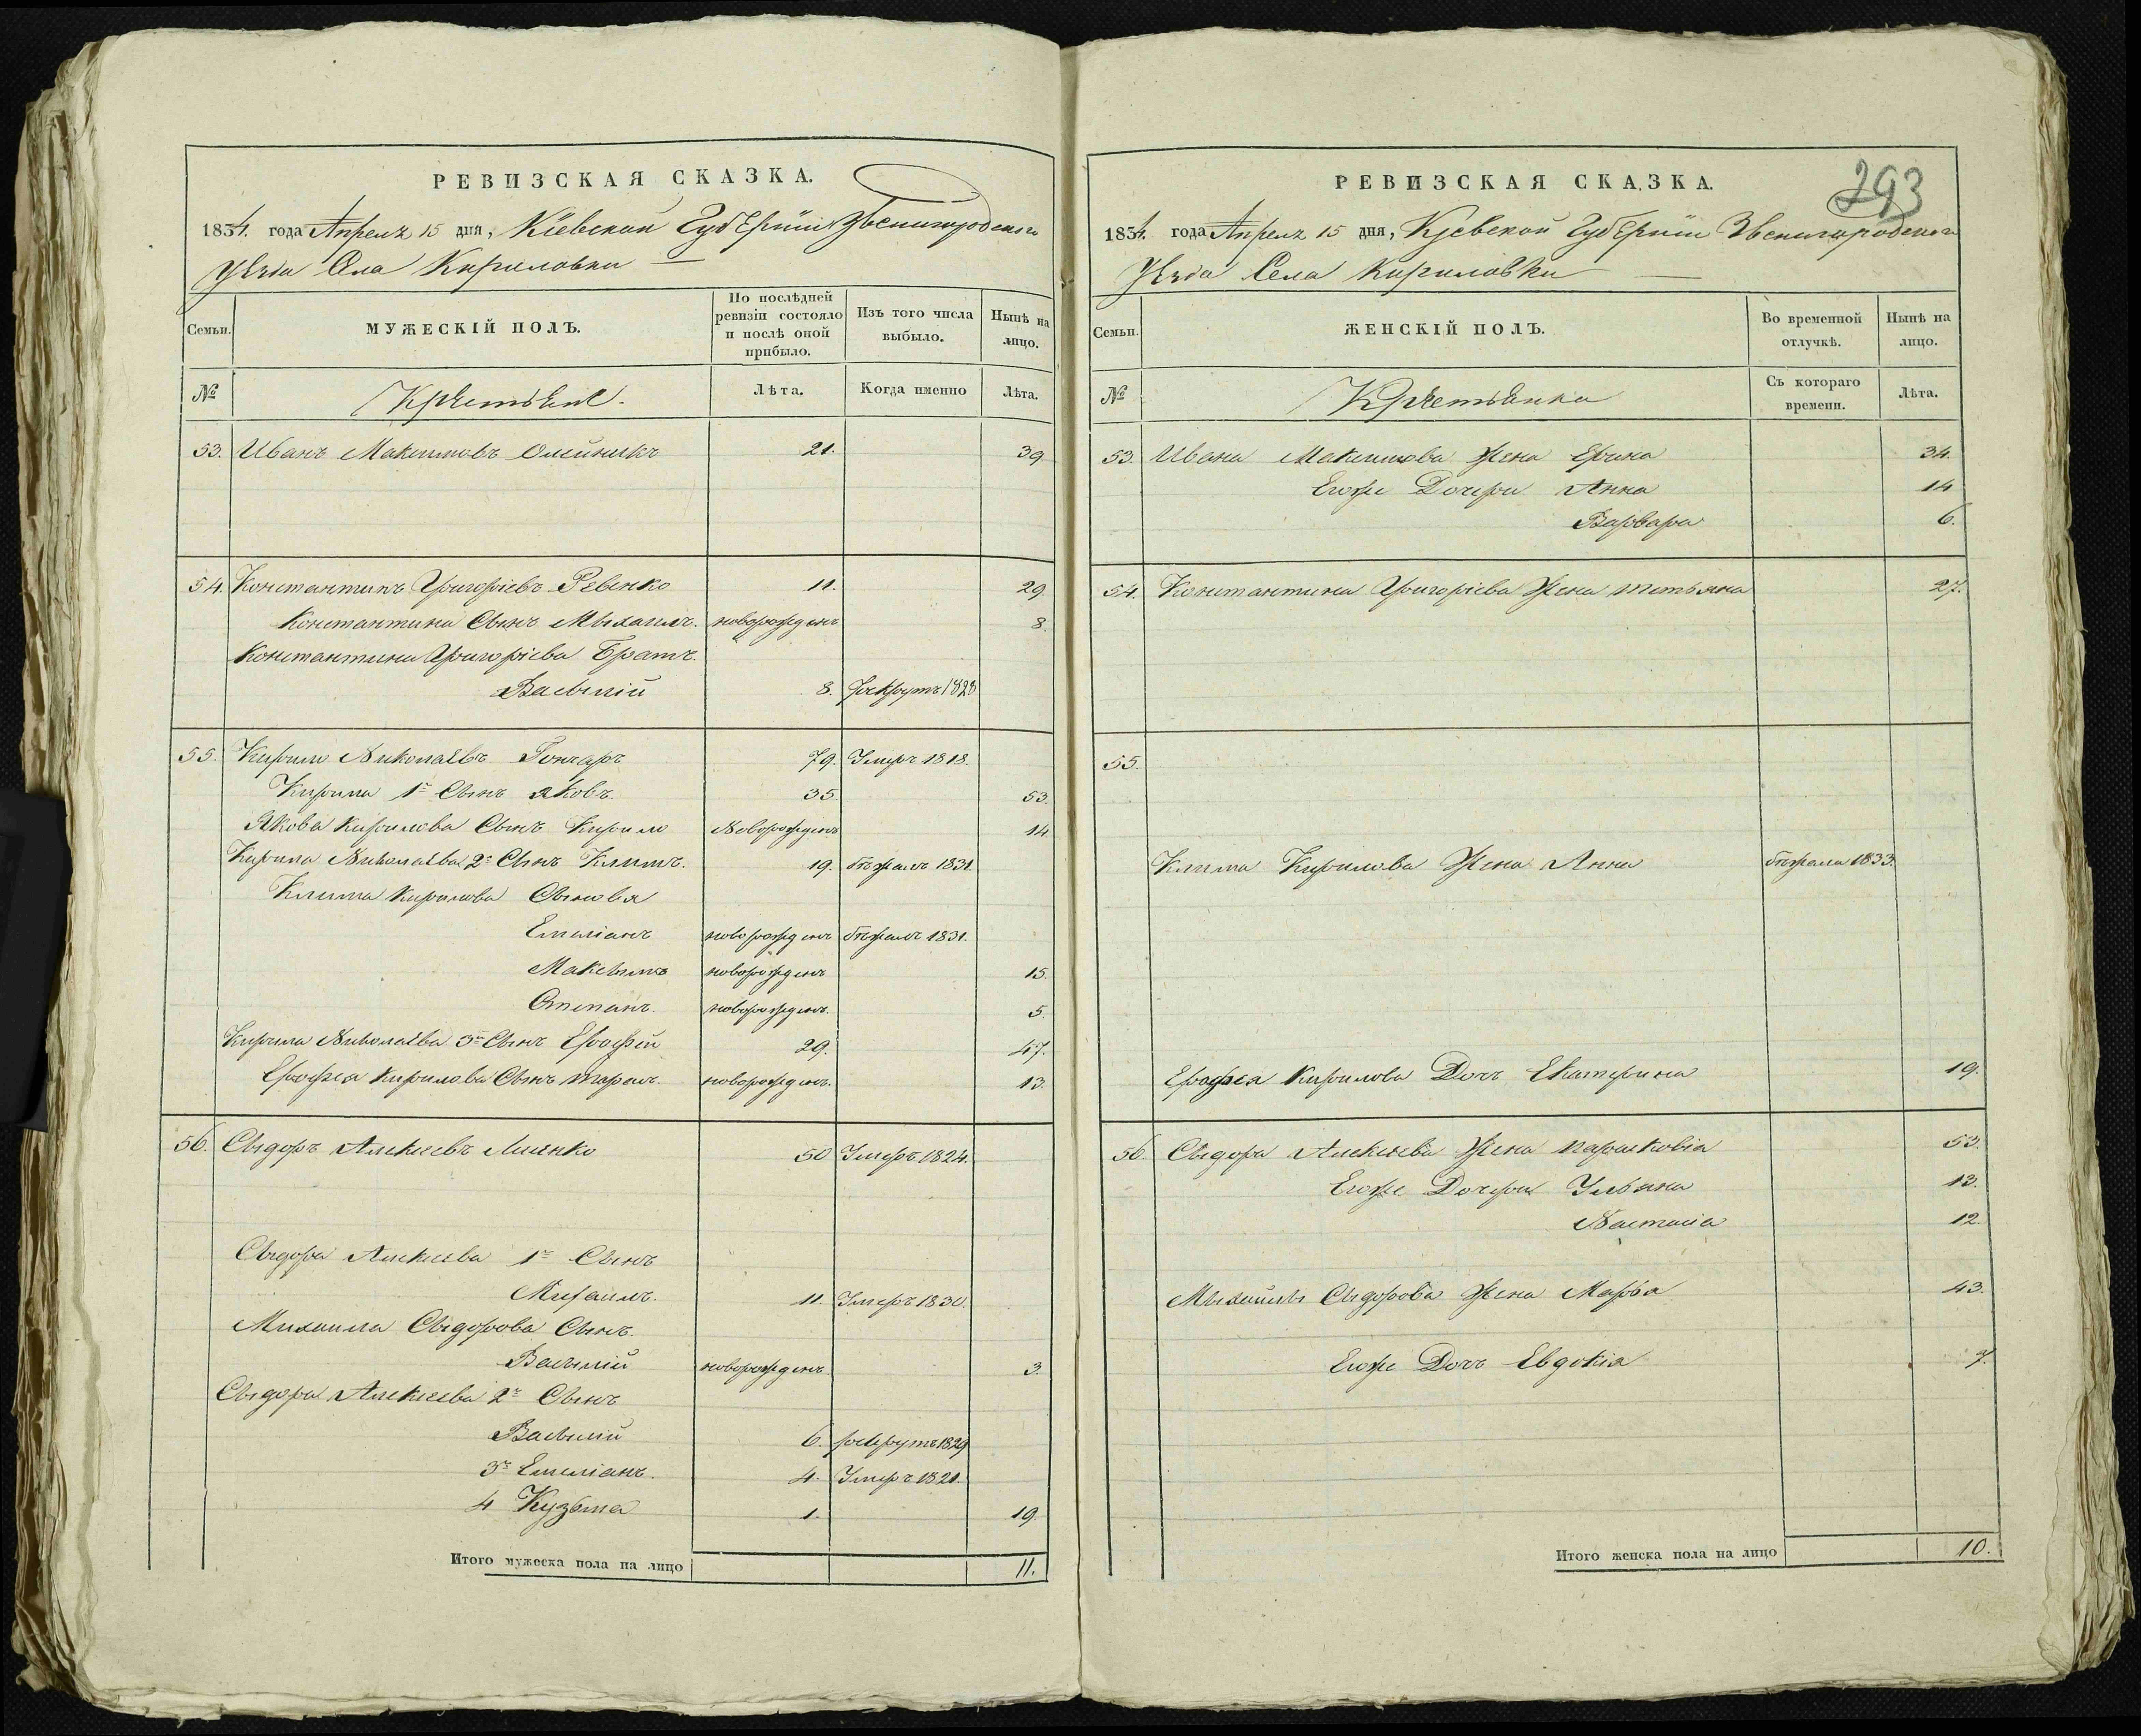 РЕВИЗСКАЯ СКАЗКА.
1834. года Апреля 15 дня, Кіевской Губерніи Звенигородского
уезда Села Кириловки
Семьи.
МУЖЕСКІЙ ПОЛЪ.
По послѣдней ревизіи состояло и послѣ оной прибыло.
Изъ того числа выбыло.
Нынѣ на лицо.
№
Крестьяне.
Лѣта.
Когда именно
Лѣта.
53. Иванъ Максимовъ Олейникъ 21. 39
54. Константинъ Григоріевъ Ревенко 11. 29.
Константина Сынъ Мыхаилъ. новорожденъ 8.
Константина Григоріева Братъ.
Васылій 8. рекрутъ 1828
55. Кирило Николаевъ Гончаръ 79. Умеръ 1818.
Кирила 1й Сынъ Яковъ 35. 53.
Якова Кирилова Сынъ Кирило Новорожденъ 14
Кирила Николаева 2й Сынъ Климъ. 19. бѣжалъ 1831.
Клима Кирилова Сыновья
Емеліанъ новорожденъ бѣжалъ 1831.
Максымъ новорожденъ 15.
Степанъ. новорожденъ. 5.
Кирила Николаева 3й Сынъ Ерофей 29. 47.
Ерофея Кирилова Сынъ Тарасъ. новорожденъ. 13.
56. Сыдоръ Алексеевъ 50 Умеръ 1824.
Сыдора Алексеева 1й Сынъ
Михаилъ. 11. Умеръ 1830.
Михаила Сыдорова Сынъ.
Васылій новорожденъ 3.
Сыдора Алексеева 2й Сынъ
Васылій 6. рекрутъ 1829
3й Емеліанъ. 4. Умеръ 1821.
4 Кузьма 1. 19.
Итого мужеска пола на лицо 11.
293
РЕВИЗСКАЯ СКАЗКА.
1834. года Апреля 15 дня, Кіевской Губерніи Звенигородского
уезда Села Кириловки
Семьи.
ЖЕНСКІЙ ПОЛЪ.
Во временной отлучкѣ.
Нынѣ на лицо.
№
Крестьянки
Съ котораго времени.
Лѣта.
53. Ивана Максимова Жена Ерина 34.
Егоже Дочери Анна 14
Варвара 6.
54. Константина Григоріева Жена Тетьяна 27.
55.
Клима Кирилова Жена Анна бѣжала 1833.
Ерофея Кирилова Дочъ Екатерина 19.
56. Сыдора Алексеева Жена Парасковія 53.
Егоже Дочери Ульяна 13.
Настасіа 12.
Мыхайлы Сыдорова Жена Марья 43.
Егоже Дочъ Евдокія 7.
Итого женска пола на лицо 10.